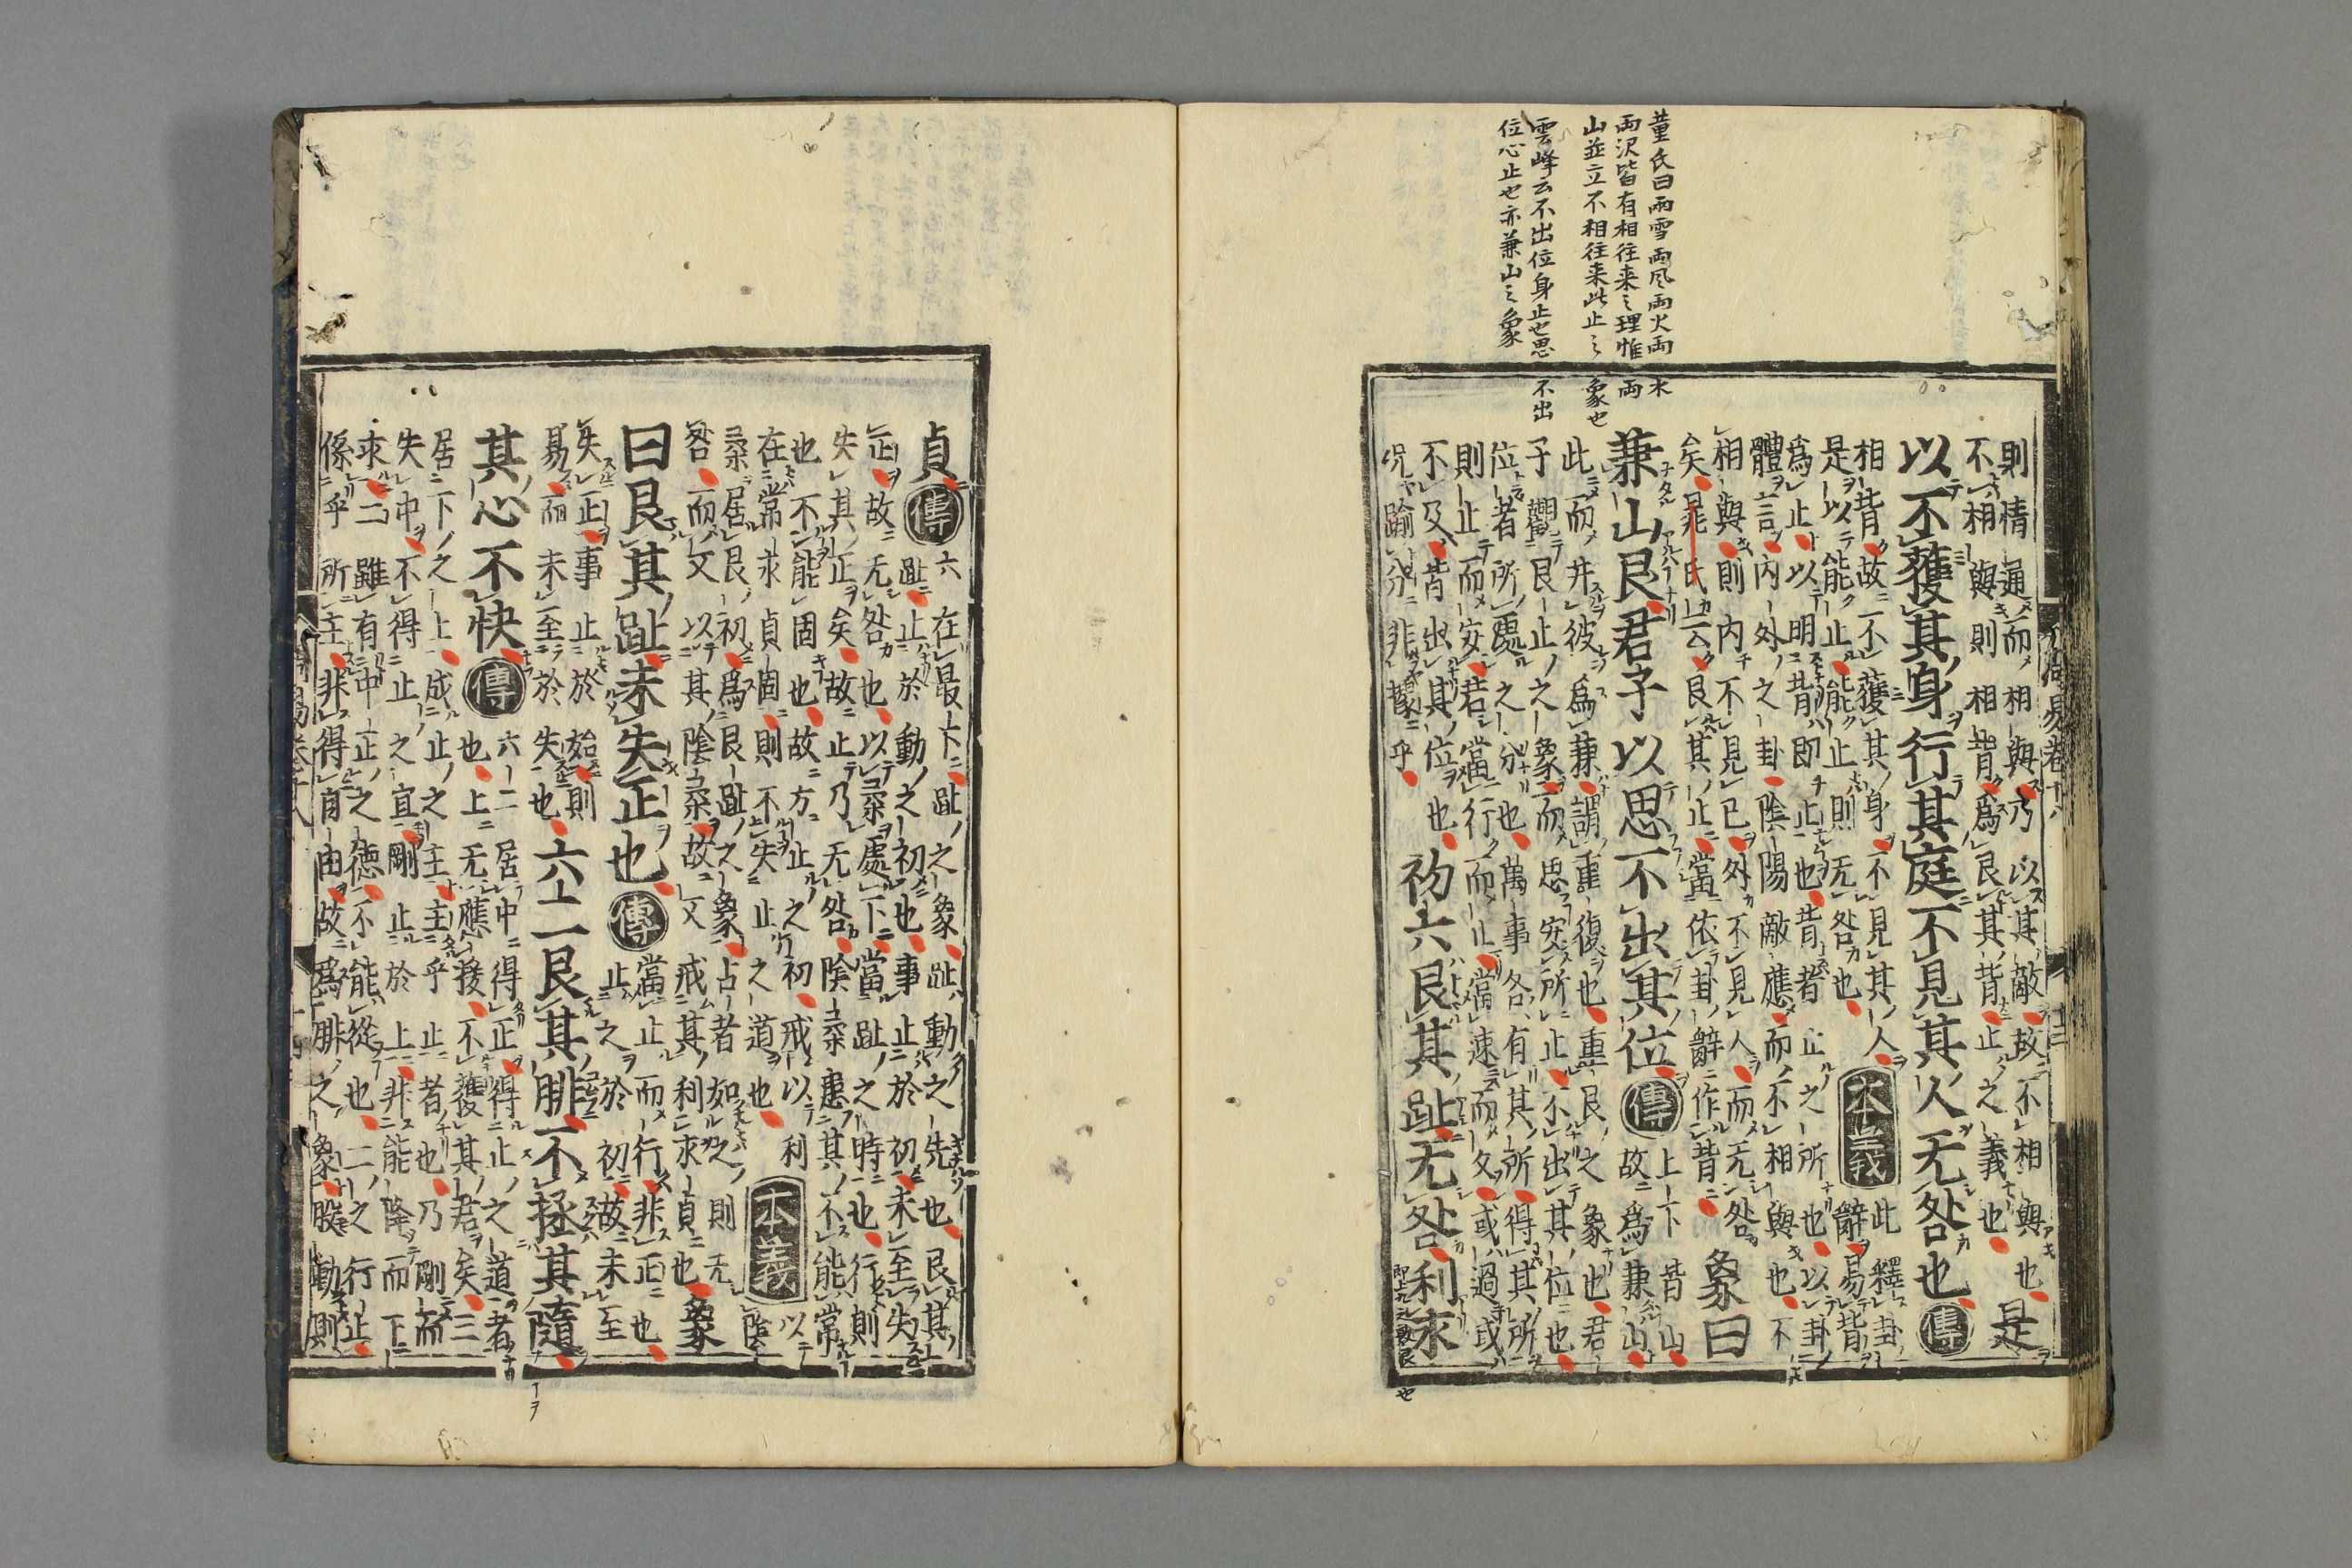 董氏曰兩雪兩風兩火兩水
兩沢皆有相往来之理惟兩
山並立不相往来此止之象也
雲峰云不出位身止也思不出
位心止也亦兼山之象
則情通而相與乃以其敵故不相與也
不相與則相背爲艮其背止之義也是
以不獲其身行其庭不見其人无咎也傳
相背故不獲其身不見其人本義此釋卦
是以能止能止則无咎也辭易背
爲止以明背即止也背者止之所也以卦
體言內外之卦陰陽敵應而不相與也不
相與則內不見已外不見人而无咎
矣晁氏云艮其止當依卦辭作背象曰
兼山艮君子以思不出其位傳上下皆山
故爲兼山
此而并彼爲兼謂重復也重艮之象也君
子觀艮止之象而思安所止不出其位也
位者所處之分也萬事各有其所得其所
則止而安若當行而止當速而久或過或
不及皆出其位也
況踰分非據乎
初六艮其趾无咎利永
即上九之敦艮也
貞傳六在最下趾之象趾動之先也艮其
趾止於動之初也事止於初未至失
正故无咎也以柔處下當趾之時也行則
失其正矣故止乃无咎陰柔患其不能常
也不能固也故方止之初戒以利
在常永貞固則不失止之道也
本義以陰
柔居艮初爲艮趾之象占者如之則无
咎而又以其陰柔故又戒其利永貞也象
曰艮其趾未失正也傳當止而行非正也
止之於初故未至
失正事止於始則
易而未至於失也六二艮其腓不拯其隨
其心不快傳六二居中得正得止之道者
也上无應援不獲其君矣三
居下之上成止之主主乎止者也乃剛而
失中不得止之宜剛止於上非能降而下
求二雖有中正之德不能從也二之行止
係乎所主非得自由故爲腓之象股動則